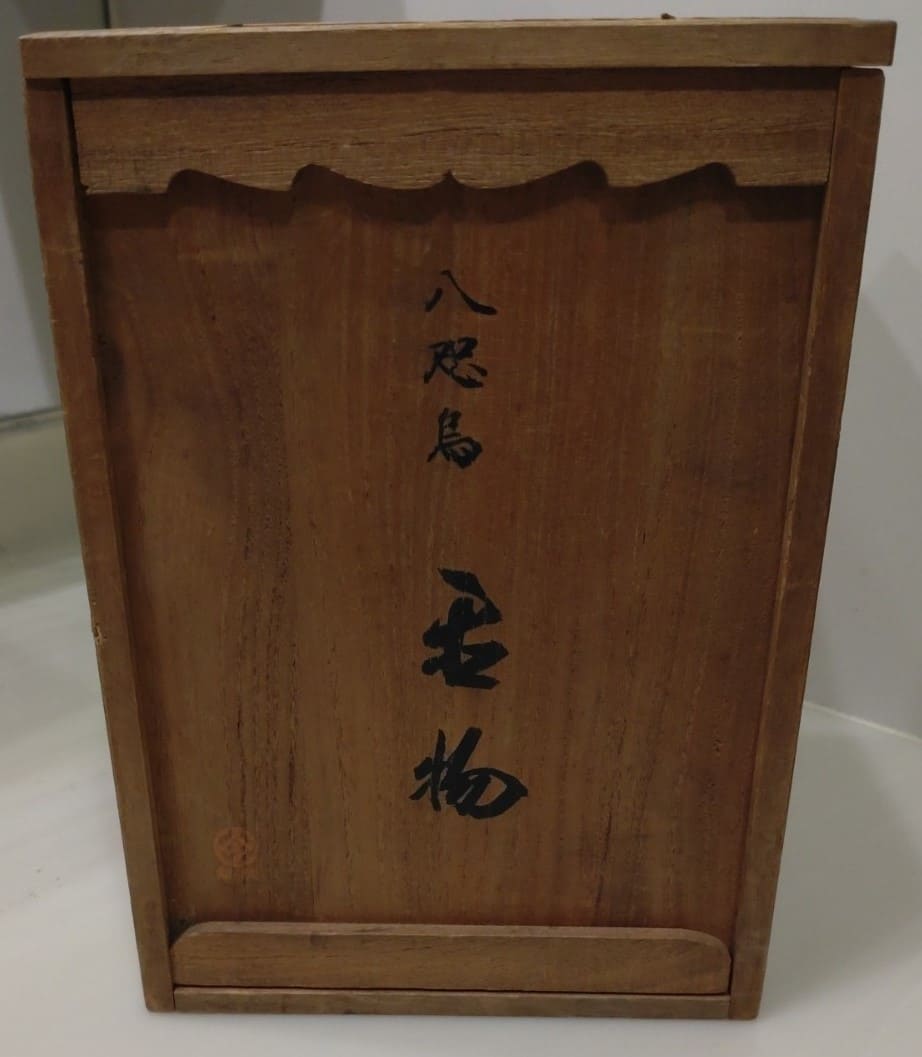 八咫烏 置物